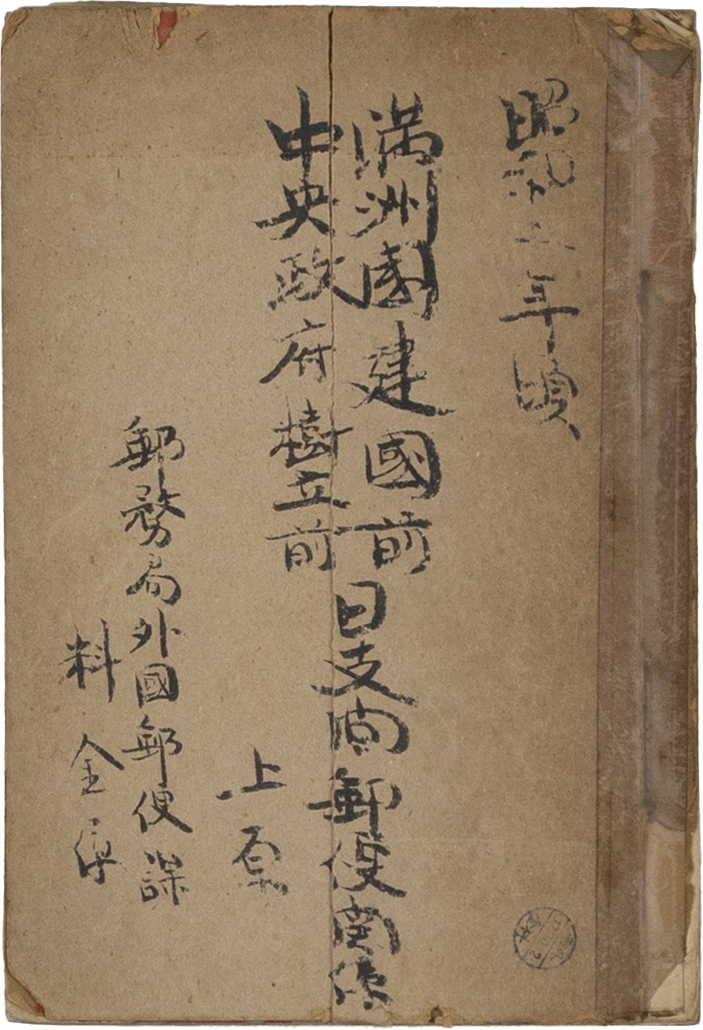 昭和 年頃
満洲國建國前
中央政府樹立前
日支間郵便関係
上原
郵務局外國郵便課
料金係